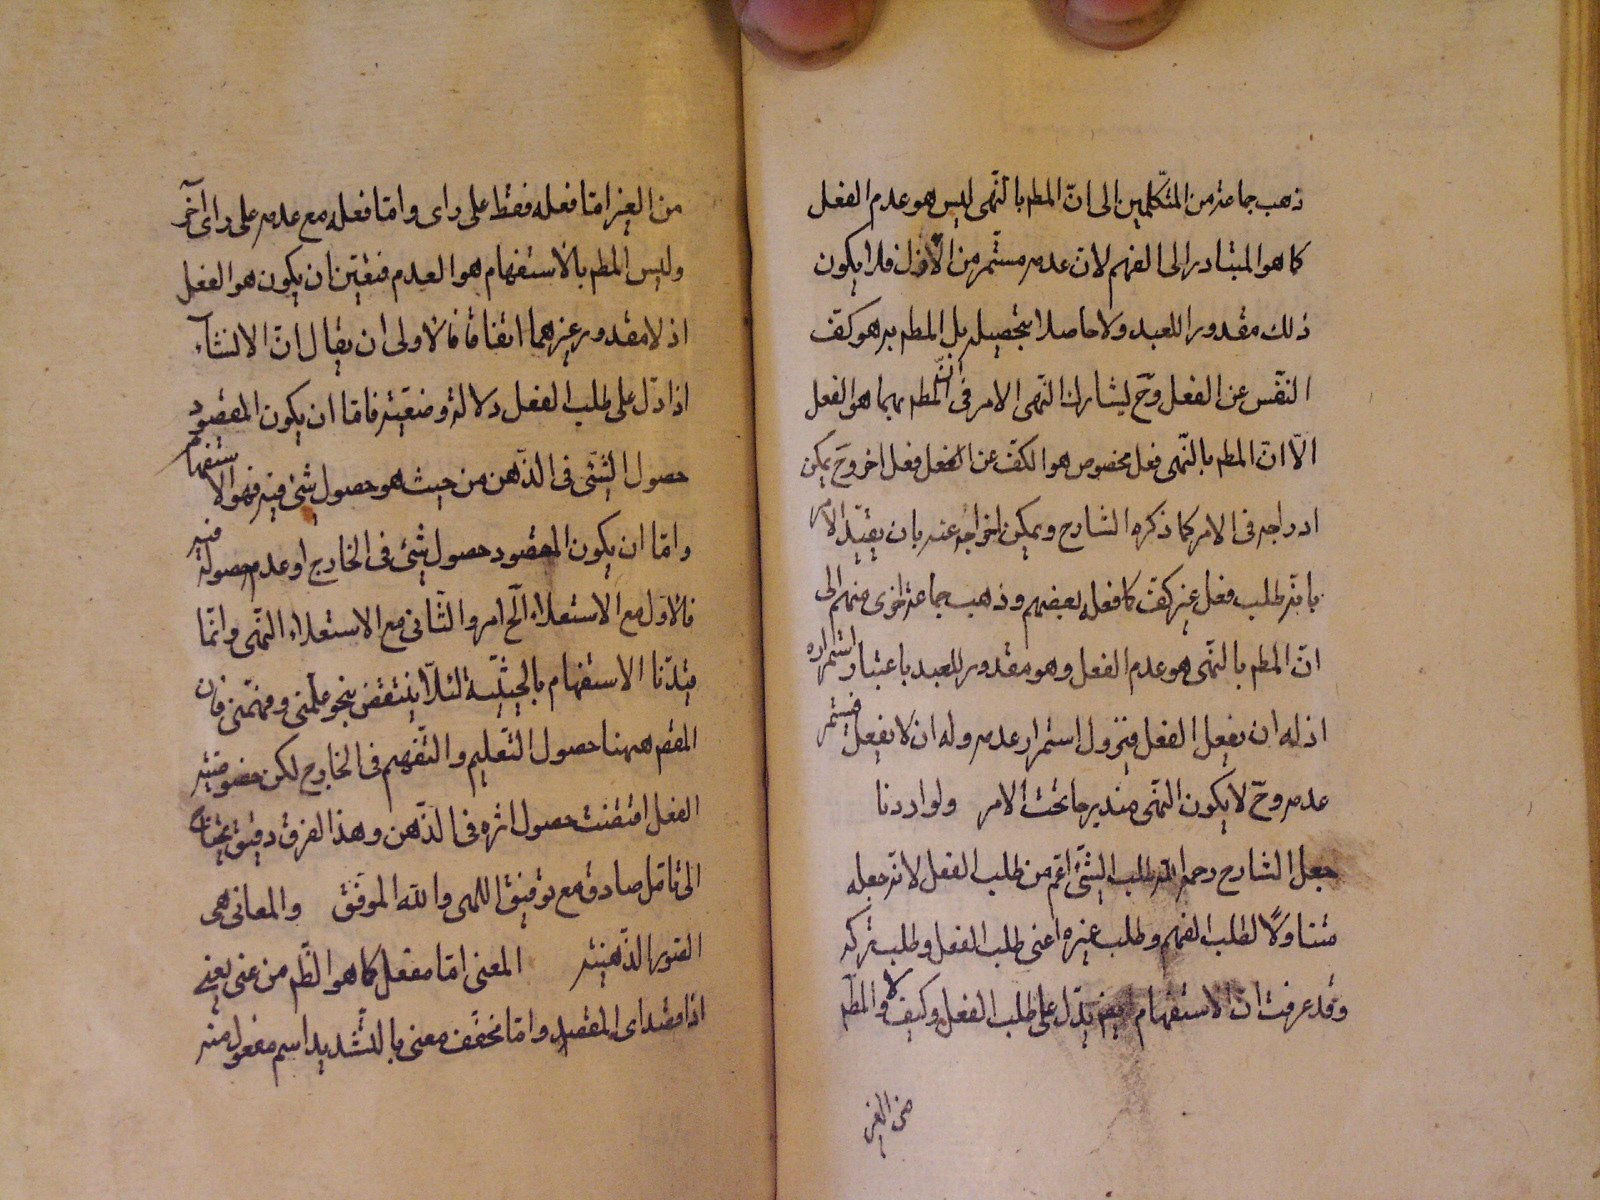 ذهب جماعة من المتكلمين الى انّ المطم بالنّهى ليس هو عدم الفعل
كما هو المتبادر الى الفهم لان عدمه مستمر من الازل فلا يكون
ذلك مقدورا للعبد ولا حاصلا بتحصيله بل المطم به هو كفّ
النّفس عن الفعل وحّ يشارك النّهى الامر فى انّ المطم بهما هو الفعل
الاّ انّ المطم بالنّهى فعل مخصوص هو الكفّ عن الفعل فعل اخر وحّ يمكن
ادراجه فى الامر كما ذكره الشارح ويمكن اخراجه عنه بان يقيّد الامر
بانّه طلب فعل غير كفّ كما فعله بعضهم وذهب جماعة اخرى منهم الى
انّ المطم بالنّهى هو عدم الفعل وهو مقدور للعبد باعتبار استمراره
اذ له ان يفعل الفعل فيزول استمرار عدمه وله ان لا يفعل فيستمر
عدمه وحّ لا يكون النّهى مندرجا تحت الامر ولو اردنا
جعل الشارح رحمه الله طلب الشّئ اعّم من طلب الفعل لانّه جعله
متناولاً لطلب الفهم وطلب غيره اعنى طلب الفعل وطلب تركه
وقد عرفت انّ الاستفهام ايضا يدّل على طلب الفعل وكيف لا والمطم
من الغير
من الغير امّا فعله فقط على راى وامّا فعله مع عدمه على راى آخر
وليس المطم بالاستفهام هو العدم فتعيّن ان يكون هو الفعل
اذ لا مقدور غيرهما اتفاقا فالاولى ان يقال انّ الانشآء
اذا دلّ على طلب الفعل دلالة وضعيّة فامّا ان يكون المقصود
حصول الشّئ فى الذّهن من حيث هو حصول شئ فيه فهو الاستفهام
وامّا ان يكون المقصود حصول شئ فى الخارج او عدم حصوله فيه
فالاوّل مع الاستعلاء الخ امر والثّانى مع الاستعلاء النّهى وانّما
قيّدنا الاستفهام بالحيثيّة لئلاّ ينتقض بنحو علّمنى وفهّمنى فان
المقصم ههنا حصول التّعليم والتّفهيم فى الخارج لكن خصوصيّة
الفعل اقتضت حصول اثره فى الذّهن وهذا الفرق دقيق يحتاج
الى تامّل صادق مع توفيق اللهى والله الموفّق والمعانى هى
الصّور الذّهنيّة المعنى امّا مفعل كما هو الظّم من عنى يعنى
اذا قصد اى المقصد وامّا مخفّف معنى بالتّشديد اسم مفعول منه